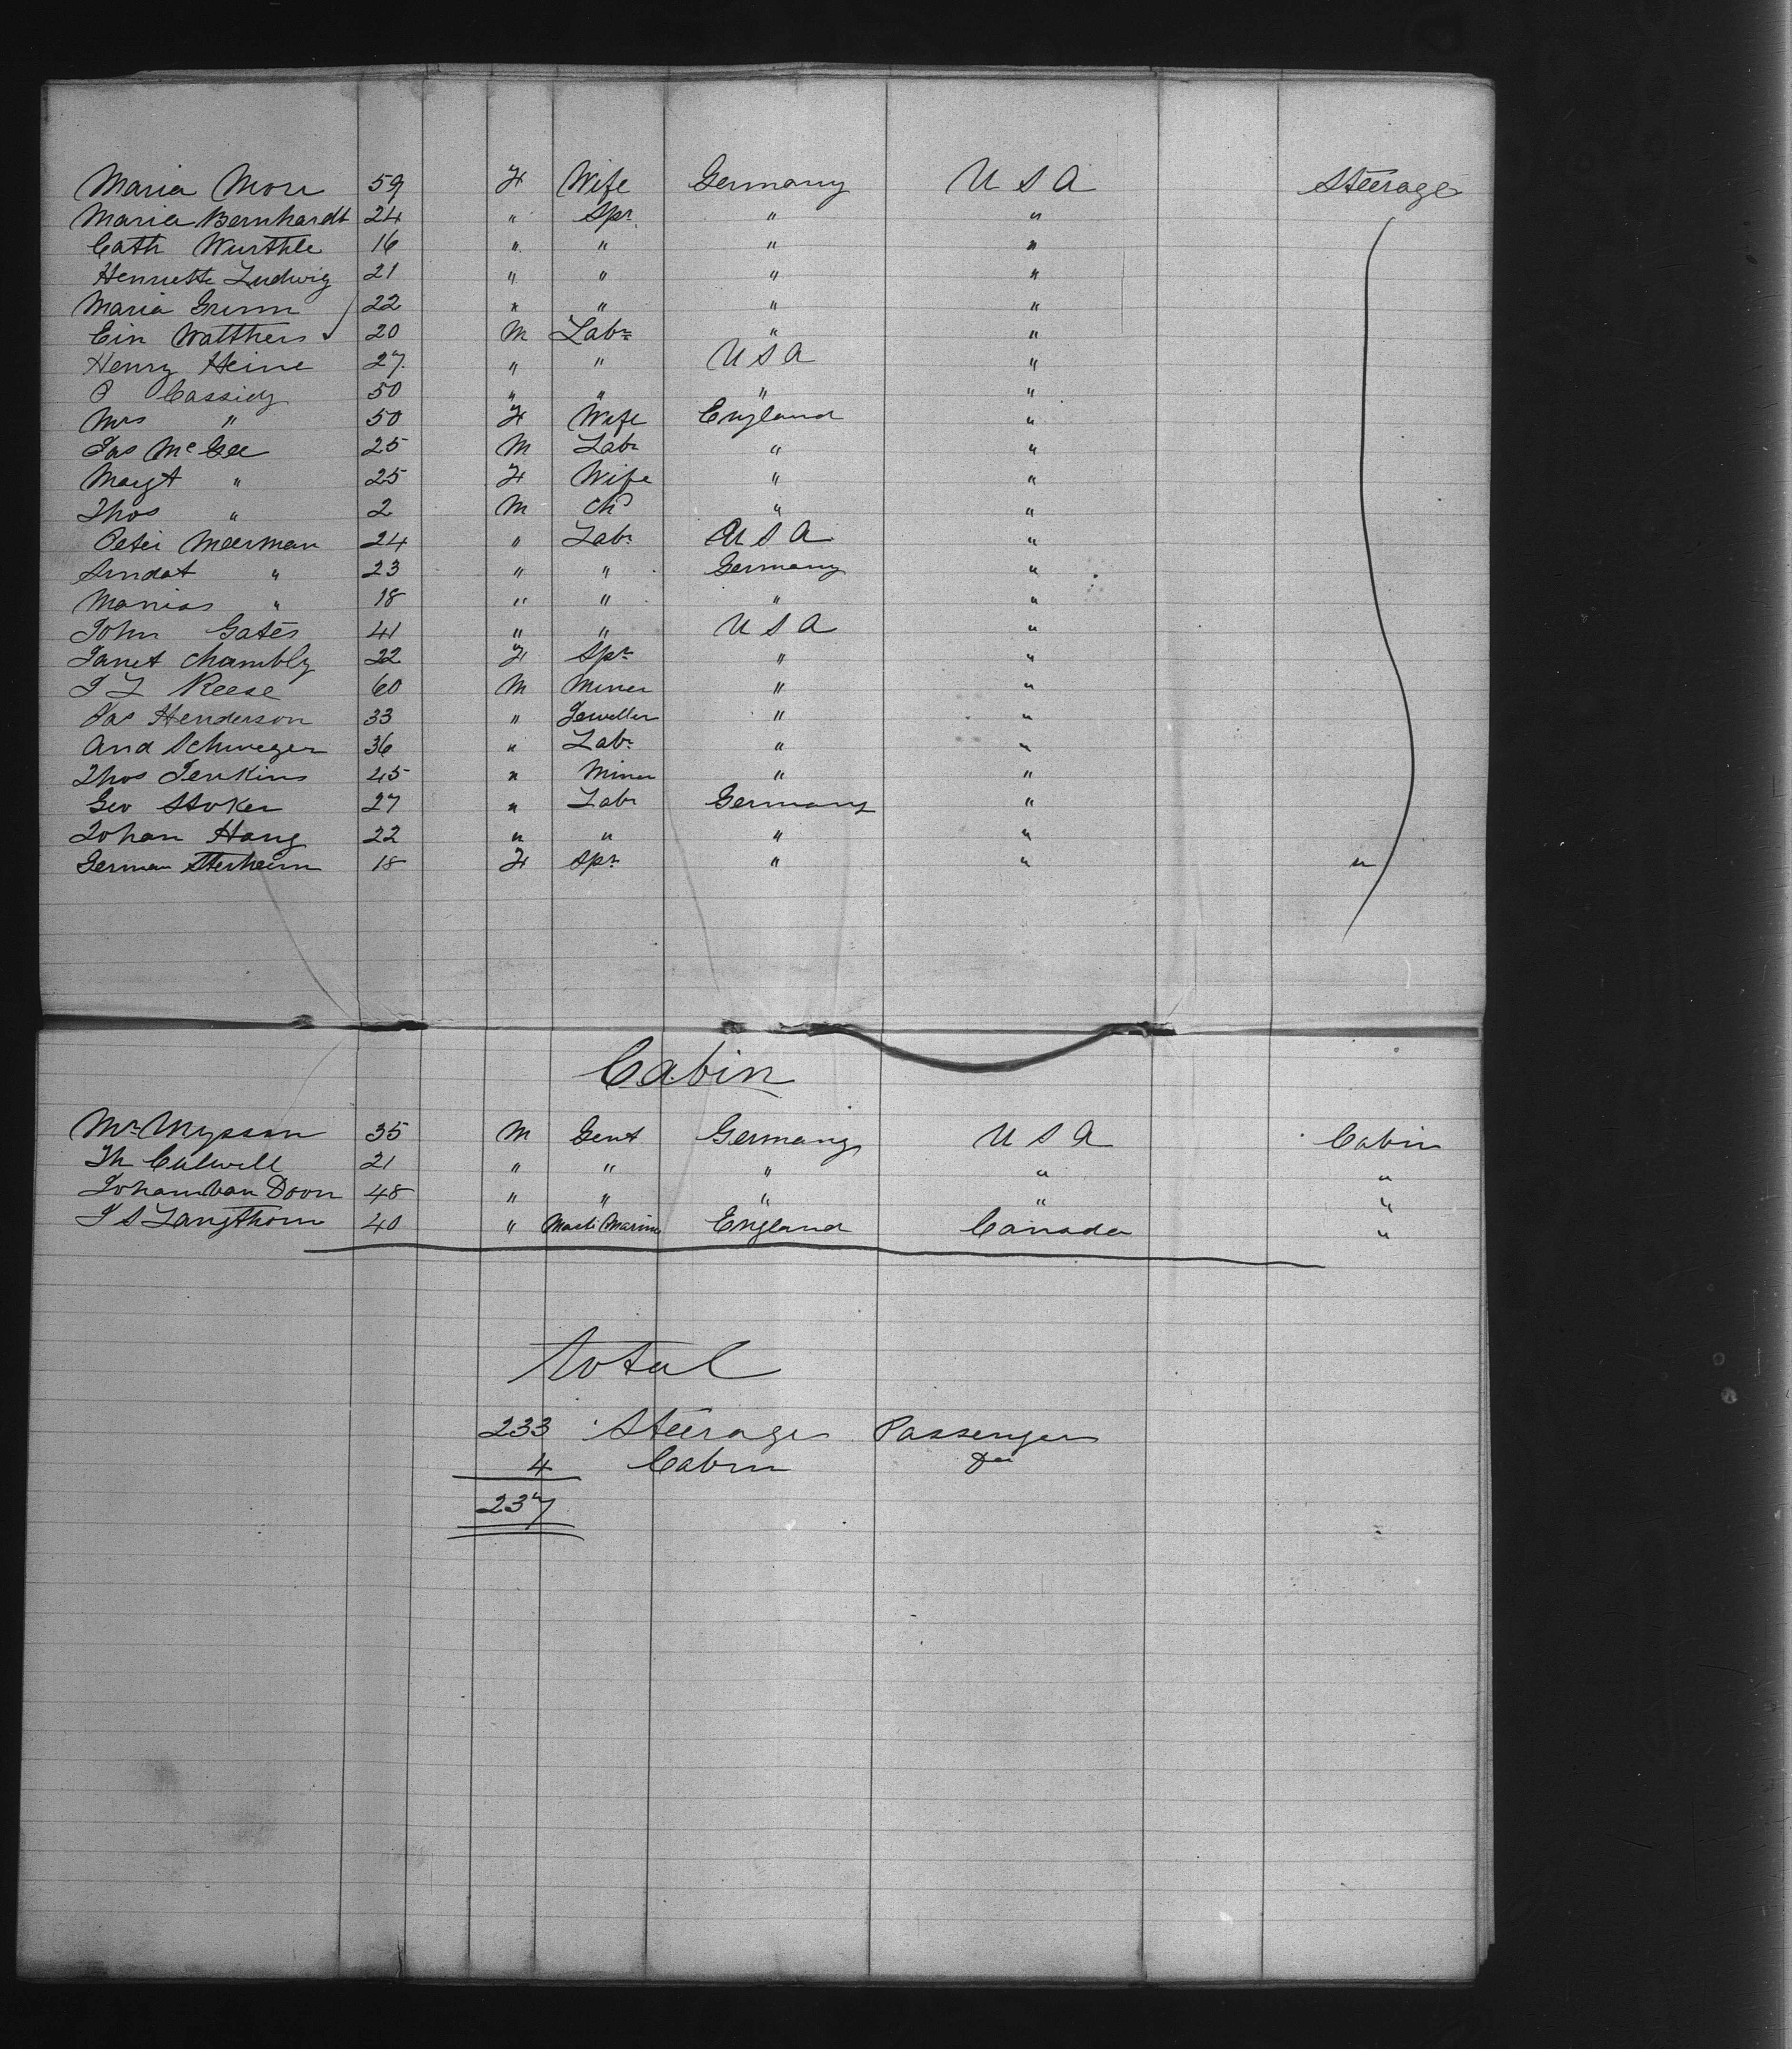 Maria Morr 59 F Wife Germany U S A Steerage
Maria Bernhardt 24 " Spr " "
Cath Wurthle 16 " " " "
Henriette Ludwig 21 " " " "
Maria Grimm 22 " " " "
Ein Watthers 20 M Labr " "
Henry Heine 27 " " U S A "
P Cassidy 50 " " " "
Mrs " 50 F Wife England "
Jas McGee 25 M Labr " "
Margt " 25 F Wife " "
Thos " 2 M chd " "
Peter Meerman 24 " Labr U S A "
" 23 " " Germany "
" 18 " " " "
John Gates 41 " " U S A "
Janet Chambly 22 F Spr " "
J L Reese 60 M Miner " "
Jas Henderson 33 " Jeweller " "
And Schweger 36 " Labr " "
Thos Jenkins 45 " Miner " "
Geo Stoker 27 " Labr Germany "
Johan Hang 22 " " " "
German Sterheim 18 F Spr " " "
Cabin
Mr 35 M Gent Germany U S A Cabin
Th Culwell 21 " " " " "
Johan Van Doon 48 " " " " "
J S Langthorn 40 " Mast Marine England Canada "
Total
233 Steerage Passengers
4 Cabin Do
237